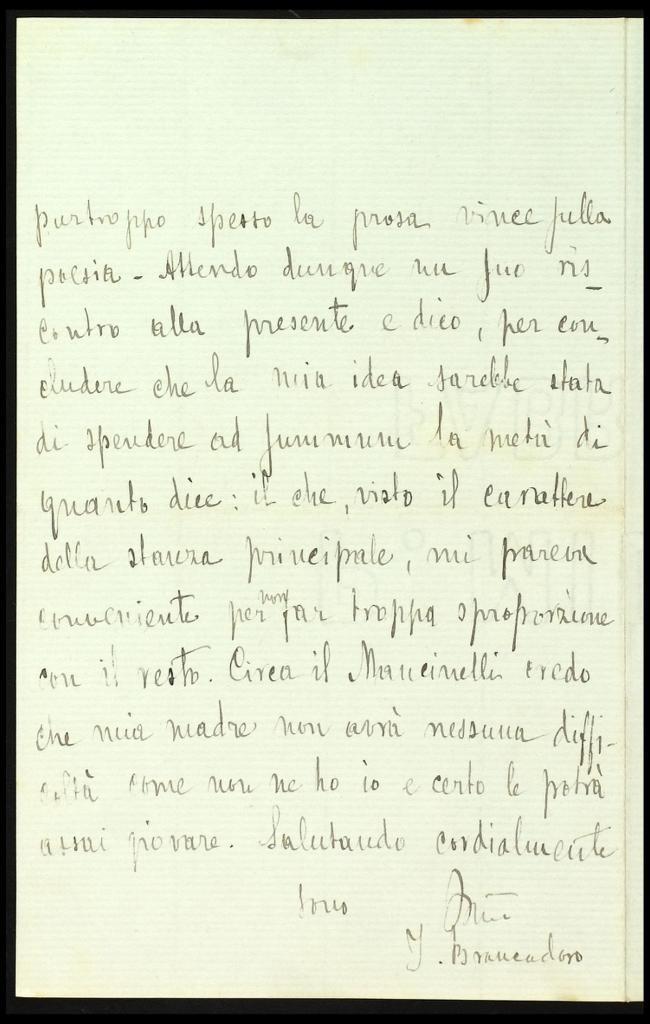 purtroppo spesso la prosa vince sulla
poesia - Attendo dunque un suo ris_
contro alla presente e dico, per con_
cludere che la mia idea sarebbe stata
di spendere ad summum la metà di
quanto dice: il che, visto il carattere
della stanza principale, mi pareva
conveniente per non far troppa sproporzione
con il resto. Circa il Mancinelli credo
che mia madre non avrà nessuna diffi-
coltà come non ne ho io e certo le potrà
assai giovare. Salutando cordialmente
sono
J. Brancadoro